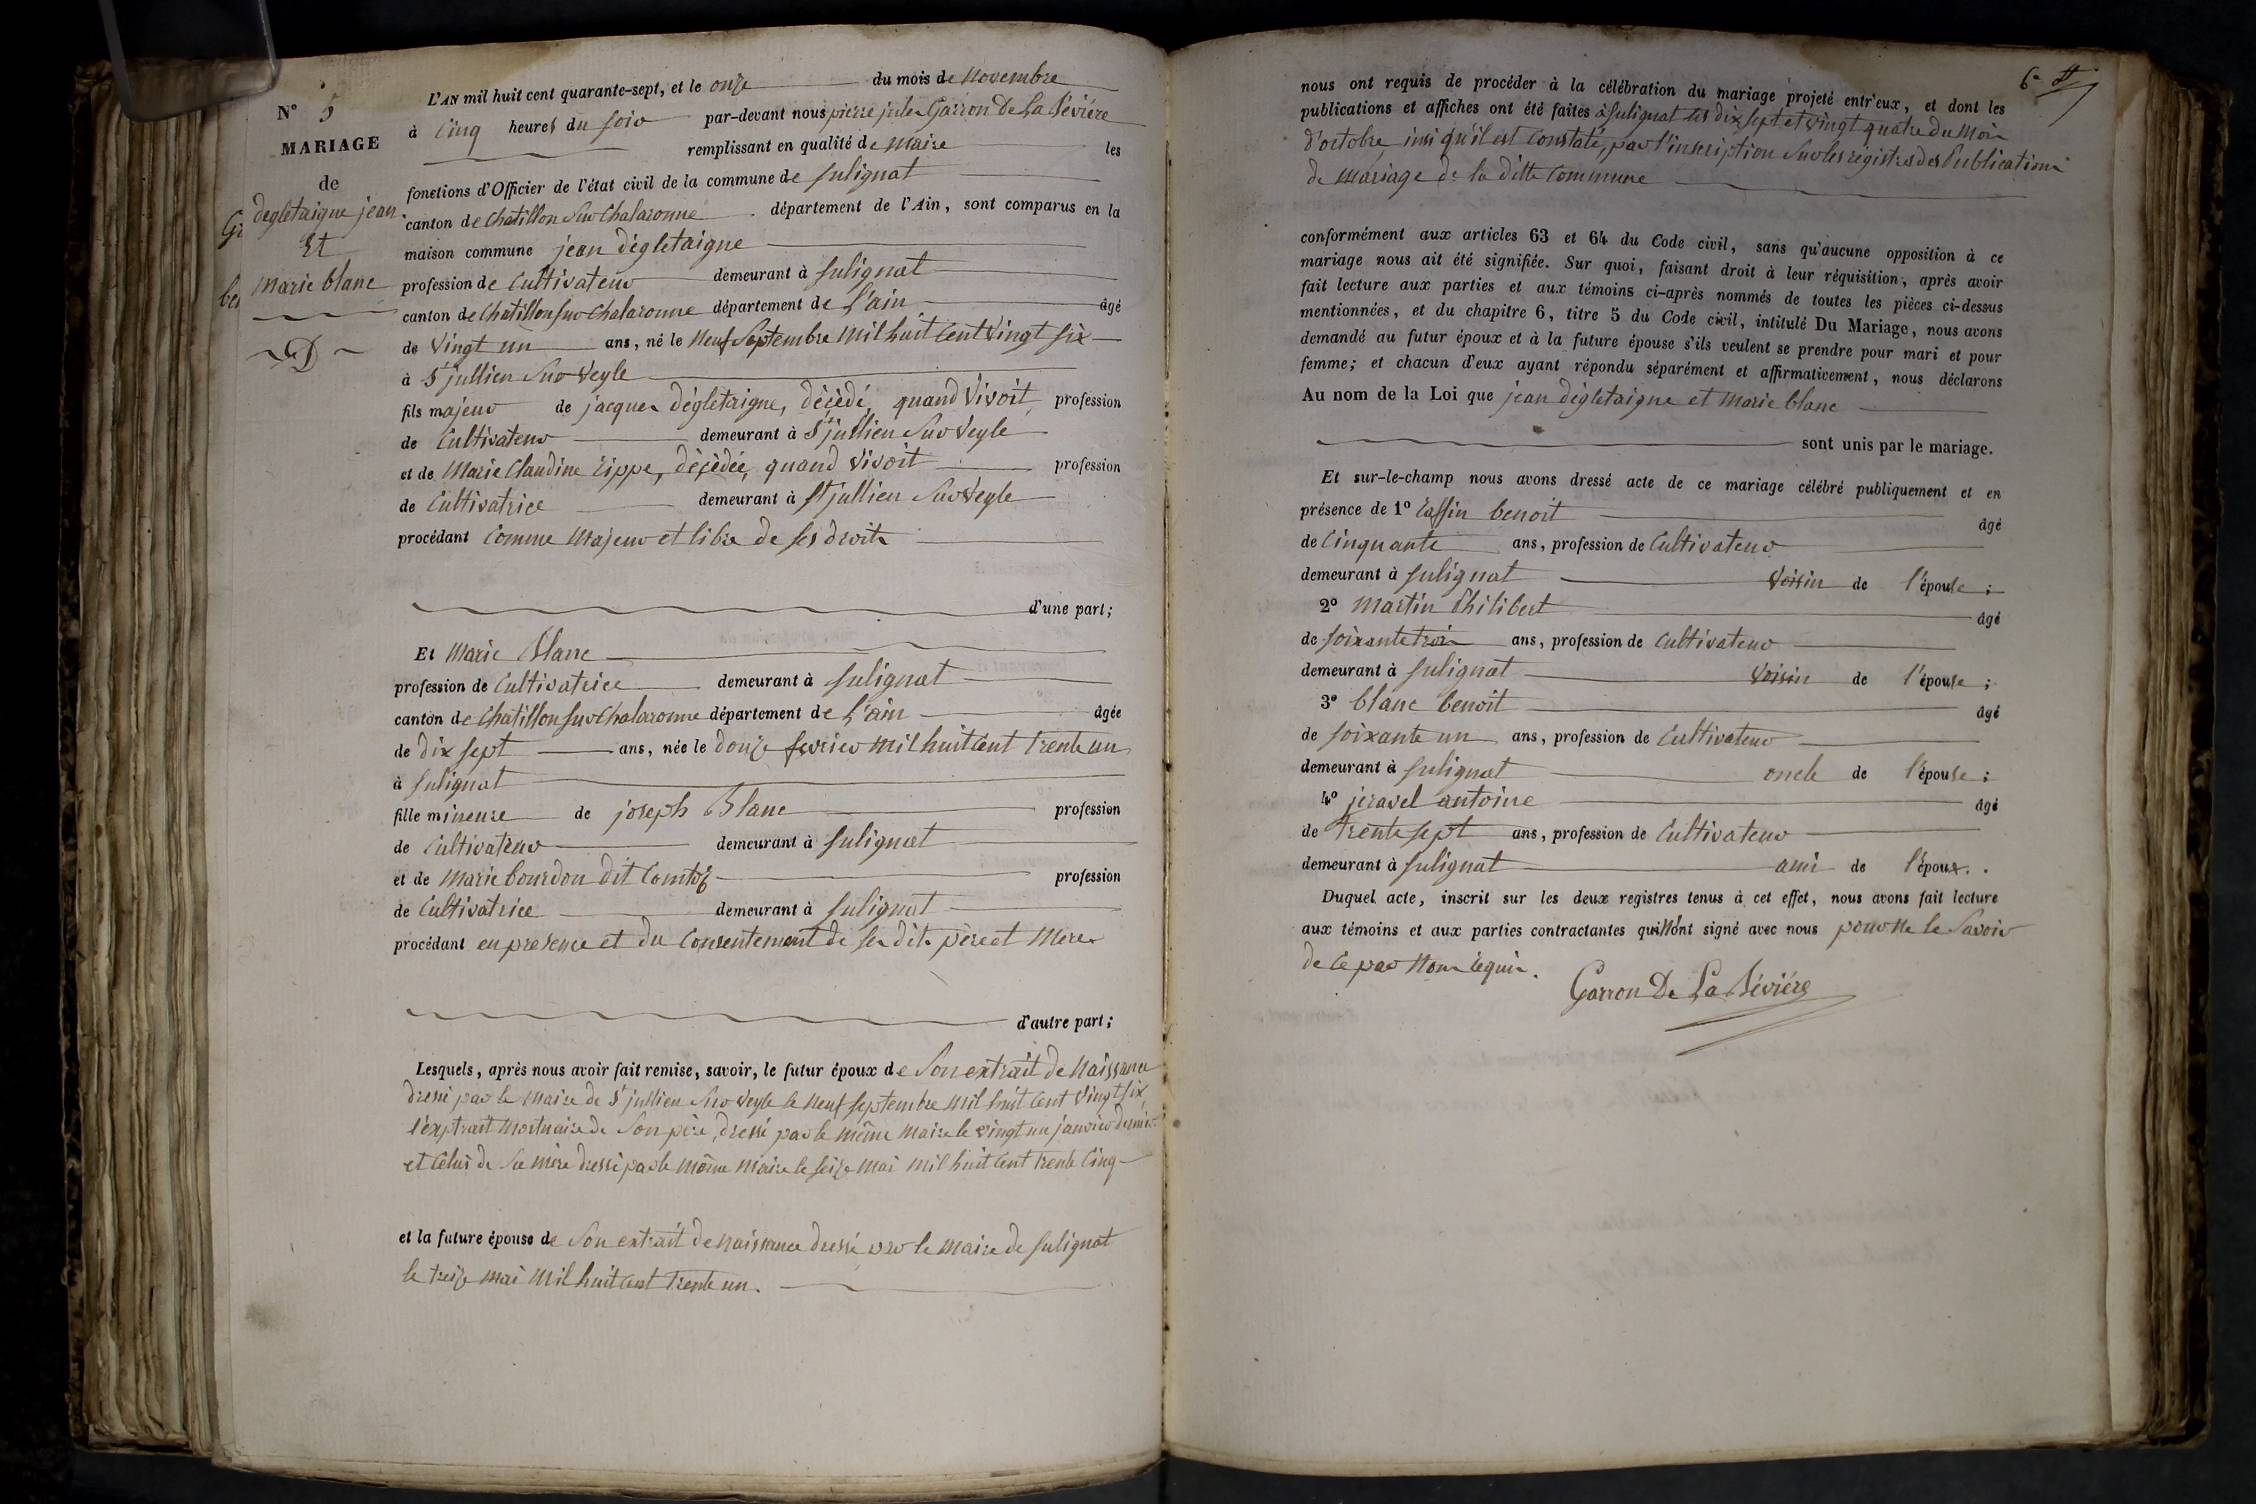 N° 5
MARIAGE
de
degletaigne jean
Et
Marie blanc
L'AN mil huit cent quarante-sept, et le onze du mois de Novembre
à Cinq heures du soir par-devant nous pierre jules Garron De La Bévière
remplissant en qualité de Maire les
fonctions d'Officier de l'état civil de la commune de Sulignat
canton de Chatillon Sur Chalaronne département de l'Ain, sont comparus en la
maison commune jean dégletaigne
profession de Cultivateur demeurant à Sulignat
canton de Chatillon sur Chalaronne département de L'ain âgé
de Vingt un ans, né le Neuf Septembre Mil huit Cent Vingt Six
à St jullien Sur Veyle
fils majeur de jacques dégletaigne, décédé, quand Vivoit profession
de Cultivateur demeurant à St jullien Sur Veyle
et de Marie Claudine Rippe, décédée, quand Vivoit profession
de Cultivatrice demeurant à St jullien Sur Veyle
procédant Comme Majeur et libre de ses droits
d'une part;
Et Marie Blanc
profession de Cultivatrice demeurant à Sulignat
canton de Chatillon sur Chalaronne département de L'ain âgée
de dix sept ans, née le douze fevrier Mil huit Cent trente un
à Sulignat
fille mineure de joseph Blanc profession
de Cultivateur demeurant à Sulignat
et de Marie bourdon dit Comtoz profession
de Cultivatrice demeurant à Sulignat
procédant en presence et du Consentement de ses dits père et Mere
d'autre part;
Lesquels, après nous avoir fait remise, savoir, le futur époux de Son extrait de Naissance
dressé par le Maire de St jullien Sur Veyle le Neuf Septembre Mil huit Cent Vingt Six,
l'exptrait Mortuaire de Son père, dressé par le même Maire le vingt un janvier dernier
et Celui de Sa mère dressé par le même Maire le seize Mai Mil huit Cent trente Cinq
et la future épouse de Son extrait de Naissance dressé par le Maire de Sulignat
le treize Mai Mil huit Cent trente un.
6e
nous ont requis de procéder à la célébration du mariage projeté entr'eux, et dont les
publications et affiches ont été faites à Sulignat les dix sept et vingt quatre du Mois
d'octobre, insi qu'il est Constaté, par l'inscription Sur les régistres des Publications
de Mariage de la ditte Commune
conformément aux articles 63 et 64 du Code civil, sans qu'aucune opposition à ce
mariage nous ait été signifiée. Sur quoi, faisant droit à leur réquisition, après avoir
fait lecture aux parties et aux témoins ci-après nommés de toutes les pièces ci-dessus
mentionnées, et du chapitre 6, titre 5 du Code civil, intitulé Du Mariage, nous avons
demandé au futur époux et à la future épouse s'ils veulent se prendre pour mari et pour
femme; et chacun d'eux ayant répondu séparément et affirmativement, nous déclarons
Au nom de la Loi que jean dégletaigne et Marie blanc
sont unis par le mariage.
Et sur-le-champ nous avons dressé acte de ce mariage célébré publiquement et en
présence de 1° Caffin benoit âgé
de Cinquante ans, profession de Cultivateur
demeurant à Sulignat Voisin de l'épouse;
2° Martin Philibert âgé
de Soixante trois ans, profession de Cultivateur
demeurant à Sulignat Voisin de l'épouse;
3° blanc benoit âgé
de Soixante un ans, profession de Cultivateur
demeurant à Sulignat oncle de l'épouse;
4° jeravel antoine âgé
de trente sept ans, profession de Cultivateur
demeurant à Sulignat ami de l'époux.
Duquel acte, inscrit sur les deux registres tenus à cet effet, nous avons fait lecture
aux témoins et aux parties contractantes qui N'ont signé avec nous pour Ne le Savoir
de Ce par Nous requis.
Garron De La Bévière